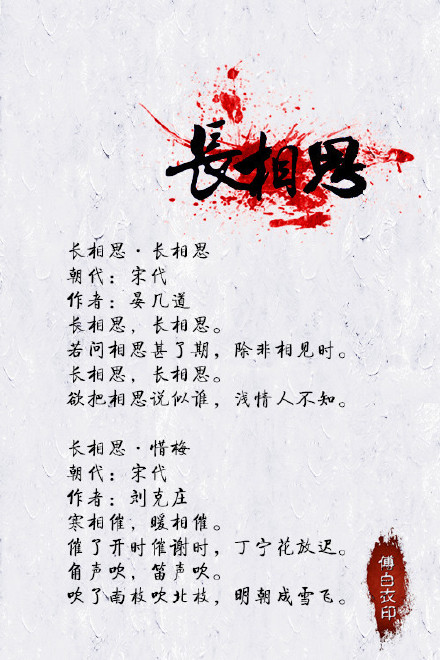 長相思
长相思·长相思
朝代：宋代
作者：晏几道
长相思，长相思。
若问相思甚了期，除非相见时。
长相思，长相思。
欲把相思说似谁，浅情人不知。
长相思·惜梅
朝代：宋代
作者：刘克庄
寒相催，暖相催。
催了开时催谢时，丁宁花放迟。
角声吹，笛声吹。
吹了南枝吹北枝，明朝成雪飞。
傅白衣印